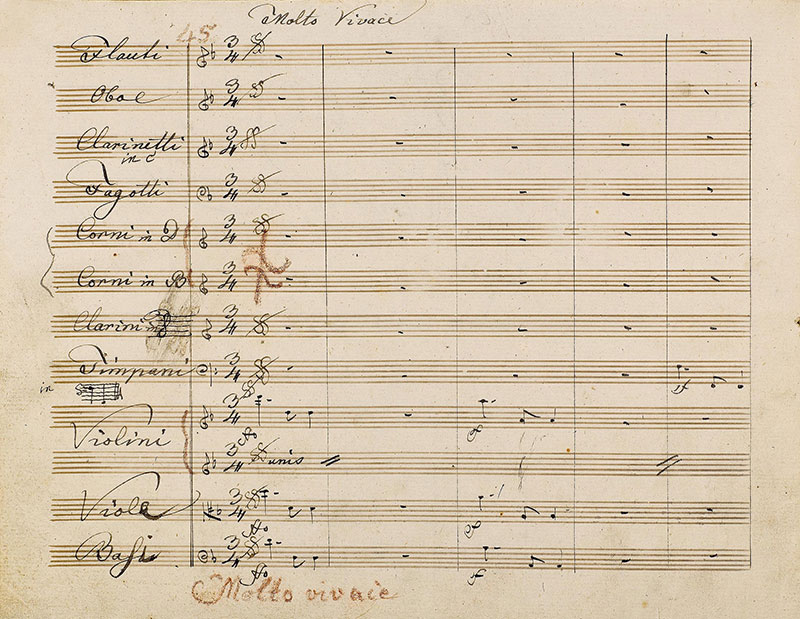 Molto Vivace
45
Flauti 3/4
Oboe 3/4
Clarinetti 3/4
in C
Fagotti 3/4
Corni in D 3/4
Corni in B 3/4
Clarini in 3/4
Timpani 3/4
in
Violini 3/4
3/4 unis
Viole 3/4
Basſi 3/4
Molto vivace